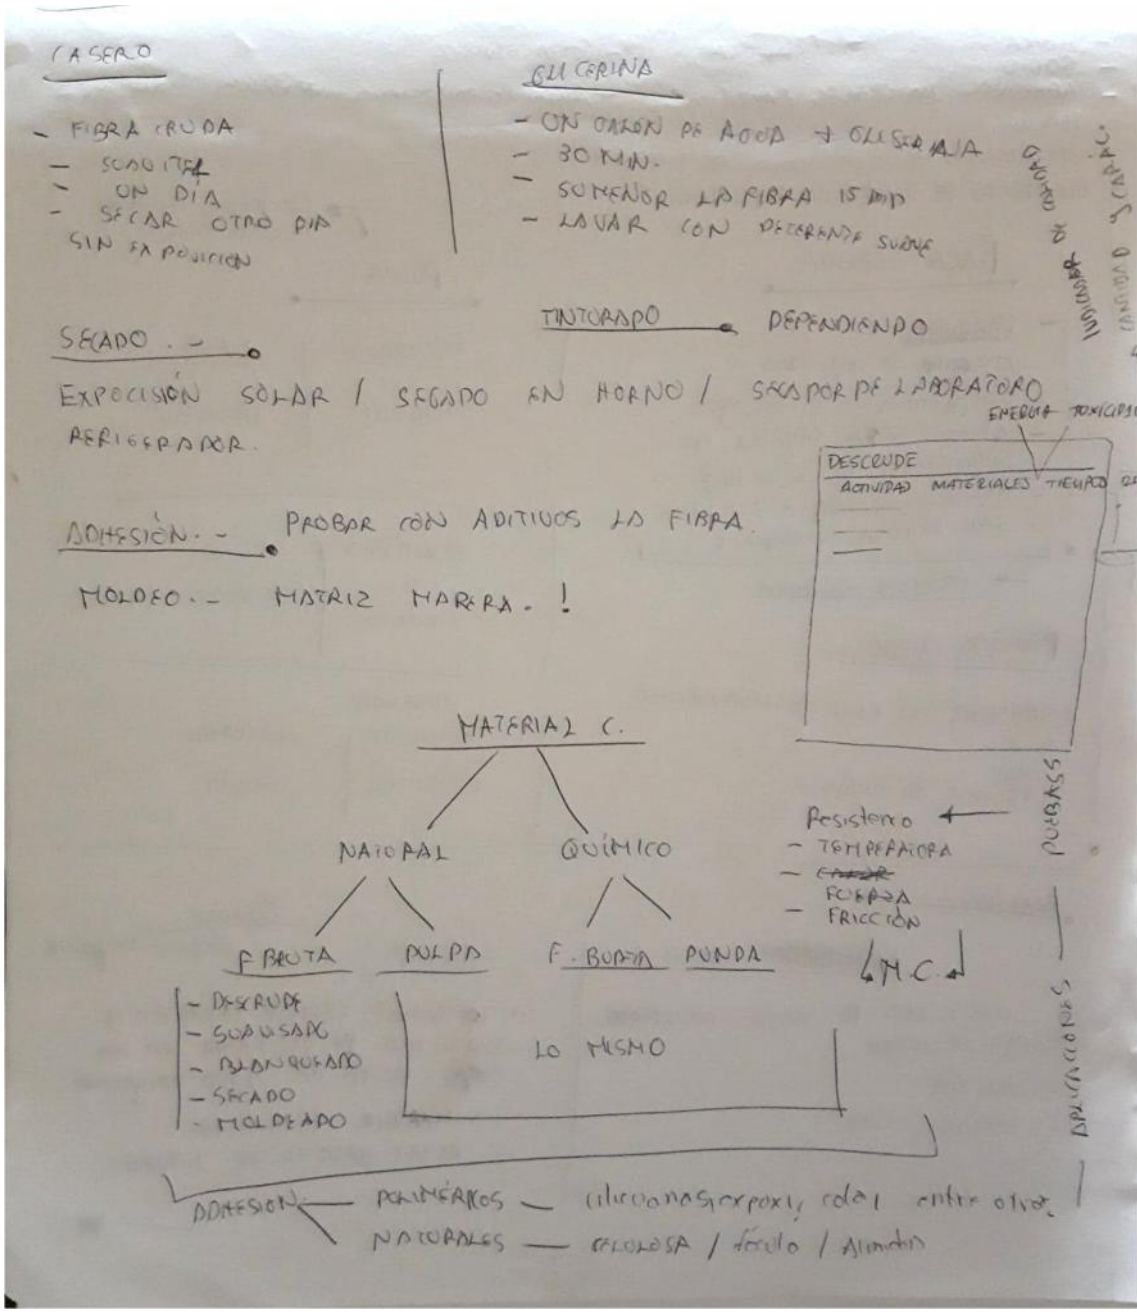 CASERO
- FIBRA CRUDA
- SUAVITEL
- UN DÍA
- SECAR OTRO DIA
SIN EXPOSICION
GLICERINA
- UN GALÓN DE AGUA + GLISERINA
- 30 MIN.
- SUMERGIR LA FIBRA 15 min
- LAVAR CON DETERGENTE SUAVE
SECADO.-
TINTURADO DEPENDIENDO
EXPOCISIÓN SOLAR / SECADO EN HORNO / SECADOR DE LABORATORO
REFRIGERADOR.
ADHESIÓN.- PROBAR CON ADITIVOS LA FIBRA.
MOLDEO.- MATRIZ MADERA. !
INDICADOR DE
CANTIDAD Y
ENERGIA TOXICIDAD
DESCRUDE
ACTIVIDAD MATERIALES TIEMPO
MATERIAL C.
NATURAL QUÍMICO
F BRUTA PULPA F. BRUTA
- DESCRUDE
- SUAVISADO
- BLANQUEADO
- SECADO
- MOLDEADO
LO MISMO
Resistencia
- TEMPERATURA
- FUERZA
- FRICCIÓN
M.C.
PUEBASS
APLICACIONES
ADHESION POLIMÉRICOS — siliconas, expoxi, cola, entre otros.
NATURALES — CELULOSA / fécula / Almidón